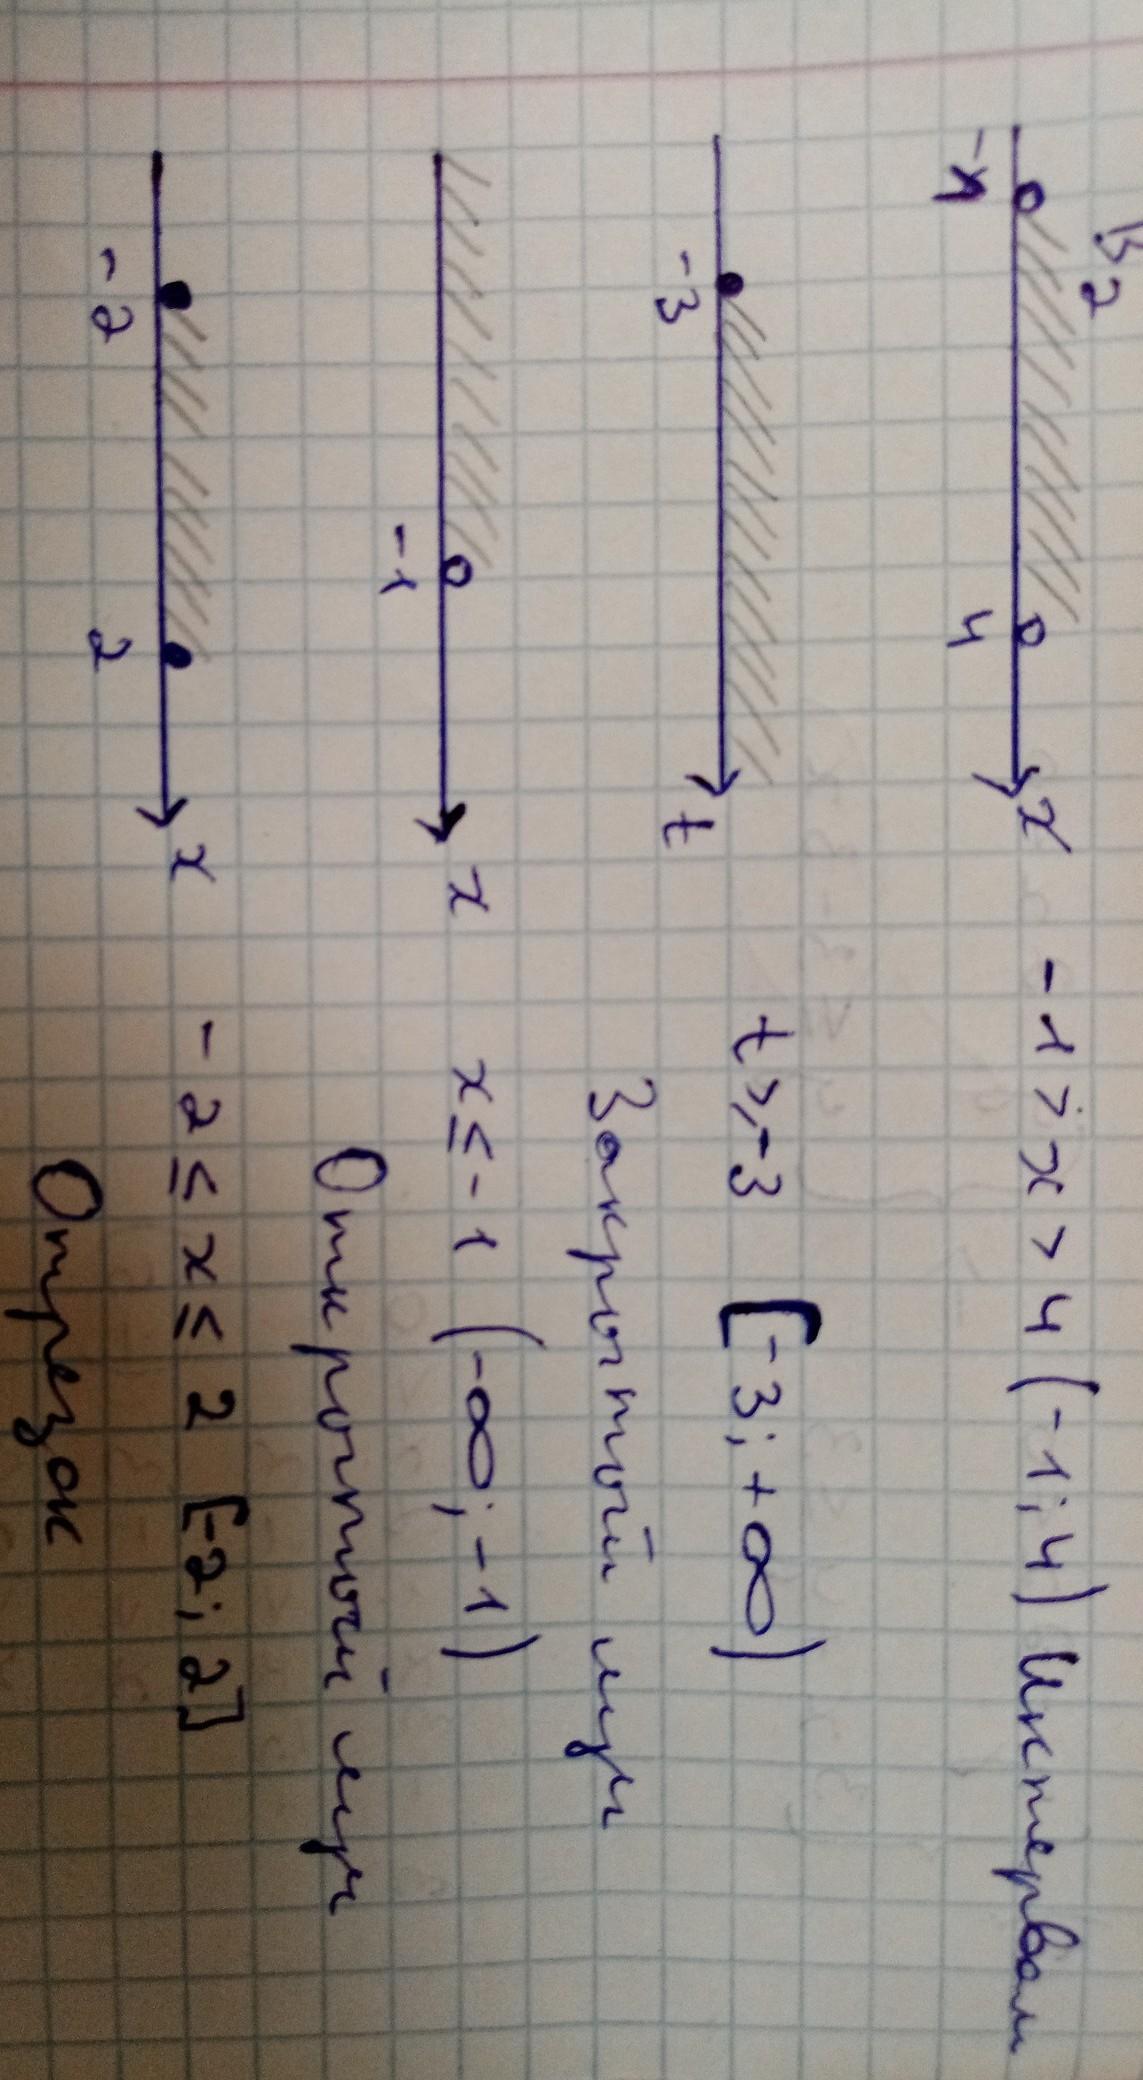 В2
-1 4 x -1 > x > 4 (-1; 4) Интервал
-3 t t ⩾ -3 [-3; +∞)
Закрытый луч
-1 x x ≤ -1 (-∞; -1)
Открытый луч
-2 2 x -2 ≤ x ≤ 2 [-2; 2]
Отрезок